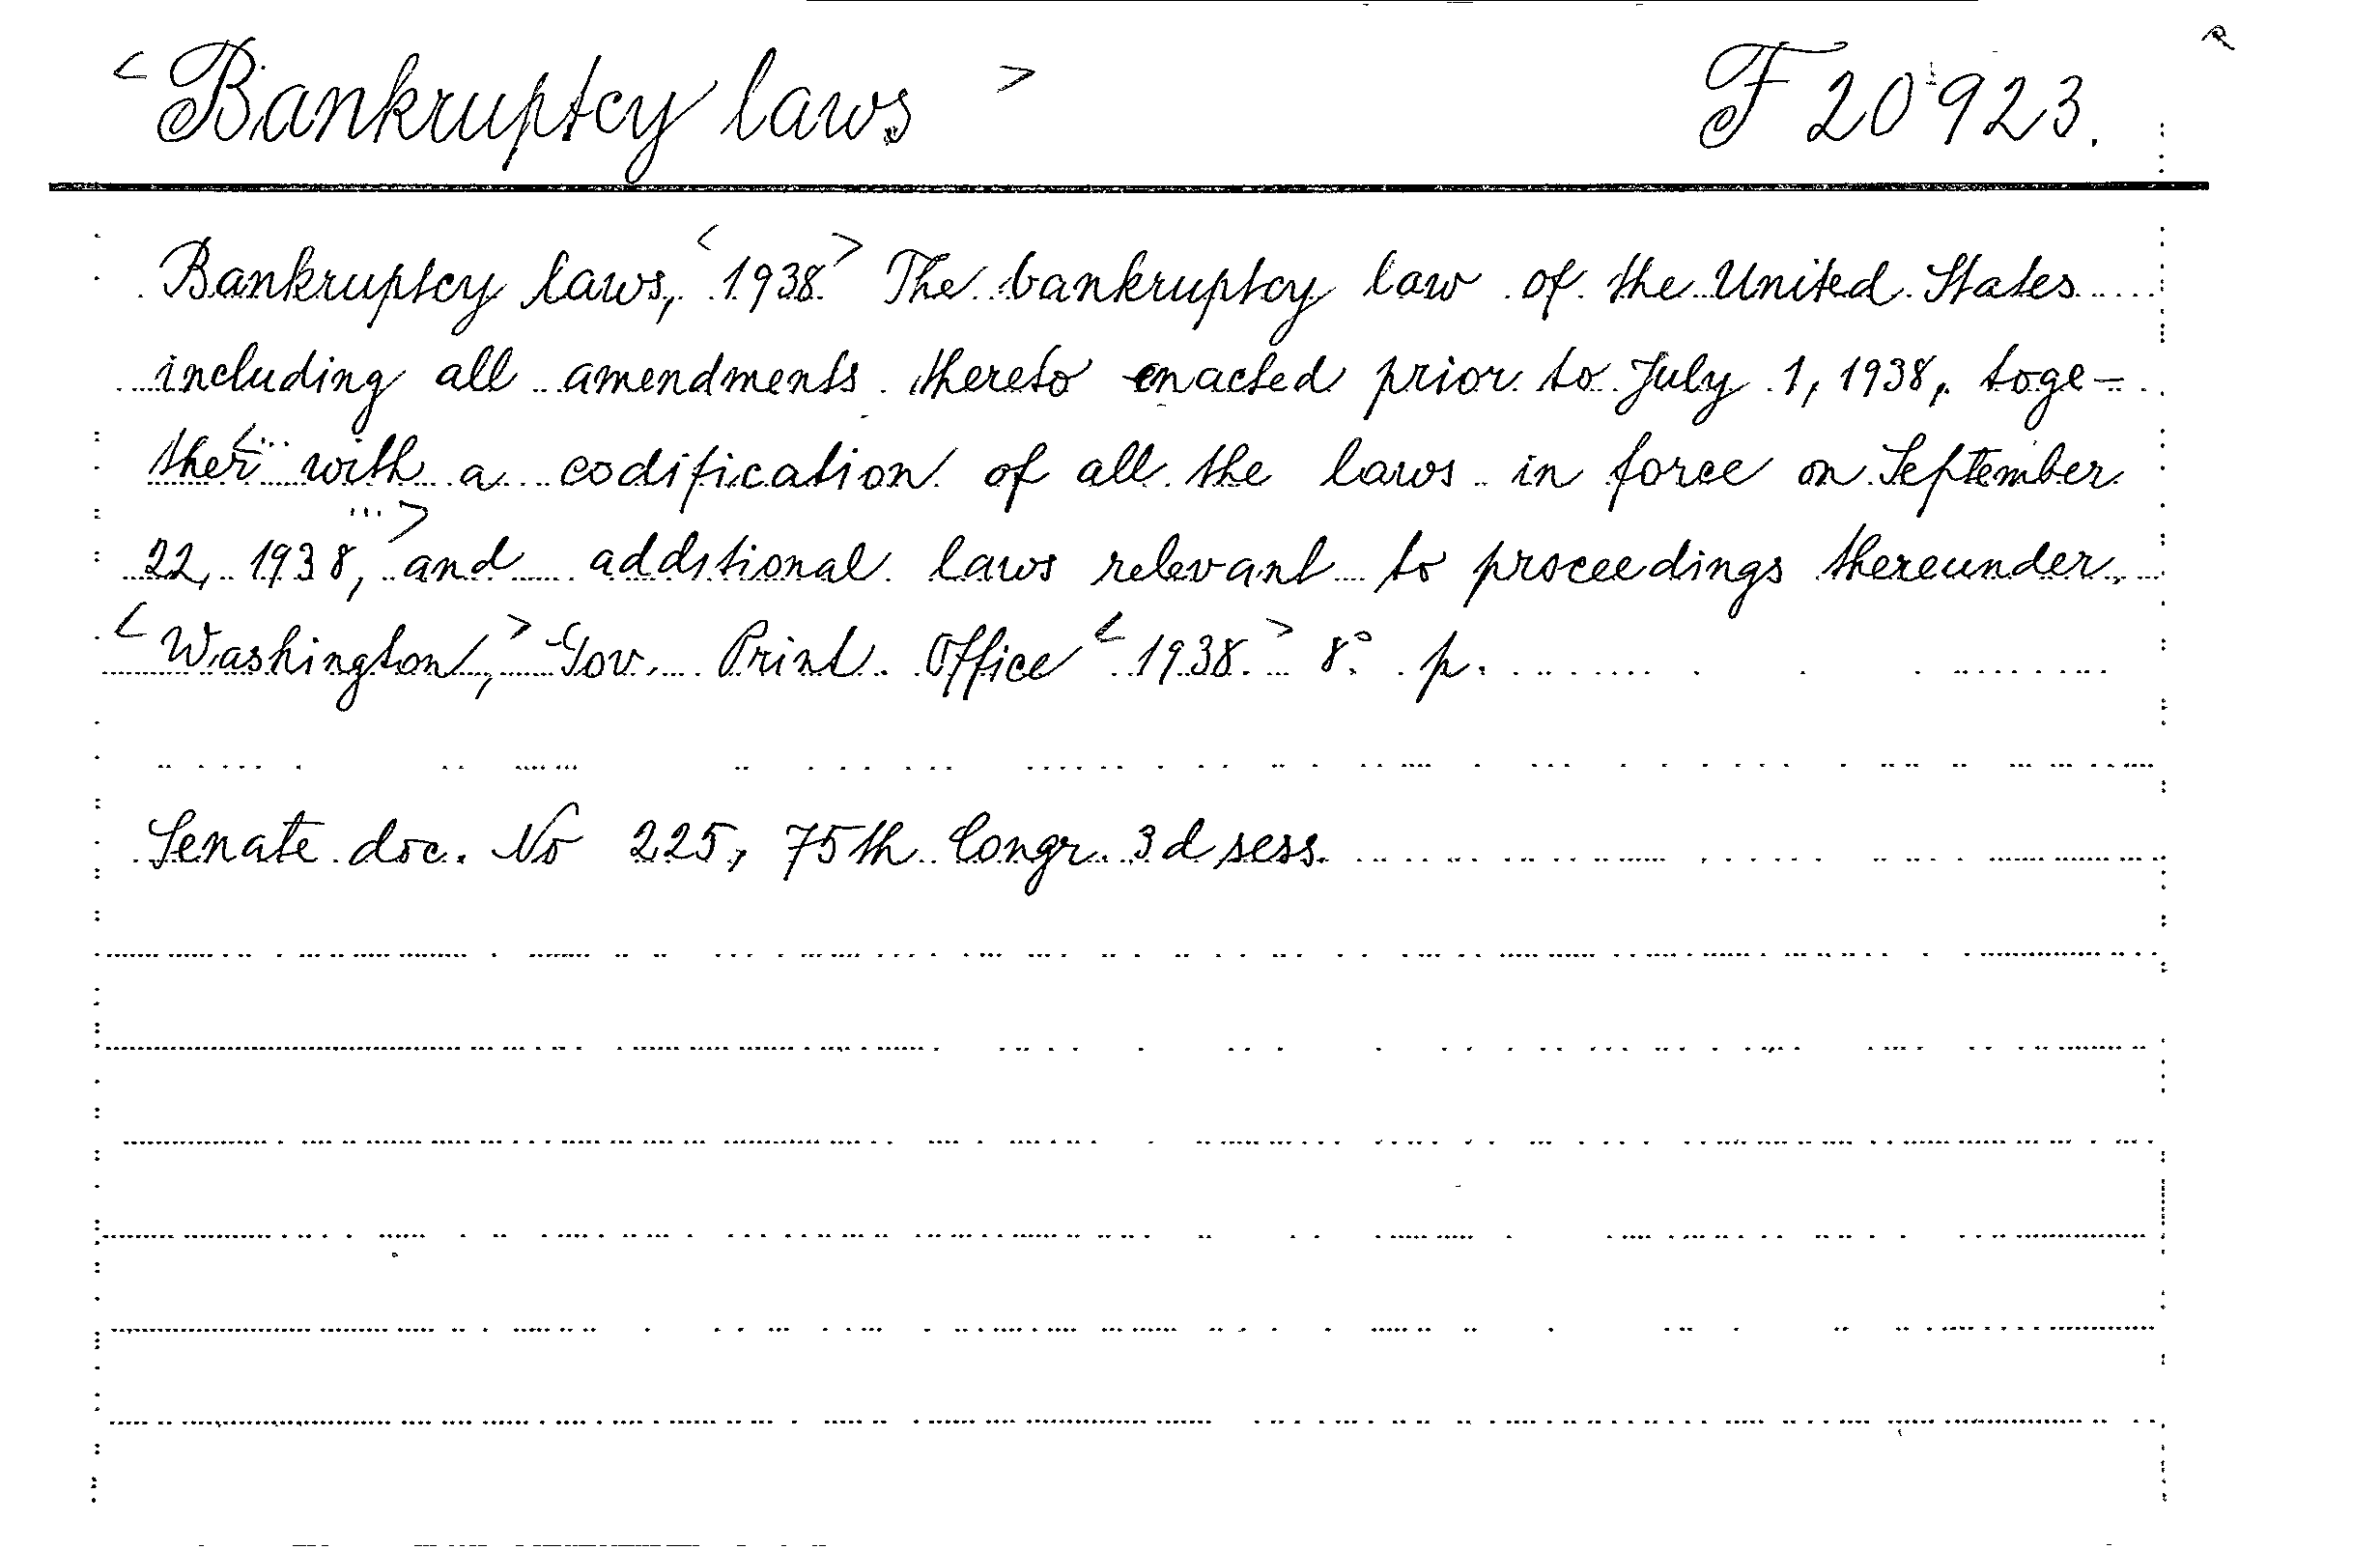 < Bankruptcy laws > F 20923.
Bankruptcy laws, <1938> The bankruptcy law of the United States
including all amendments thereto enacted prior to July 1, 1938, toge-
ther <... with a codification of all the laws in force on September
22, 1938, ...> and additional laws relevant to proceedings thereunder.
<Washington,> Gov. Print. Office <1938.> 8° p.
Senate doc. No 225, 75th Congr. 3d sess.